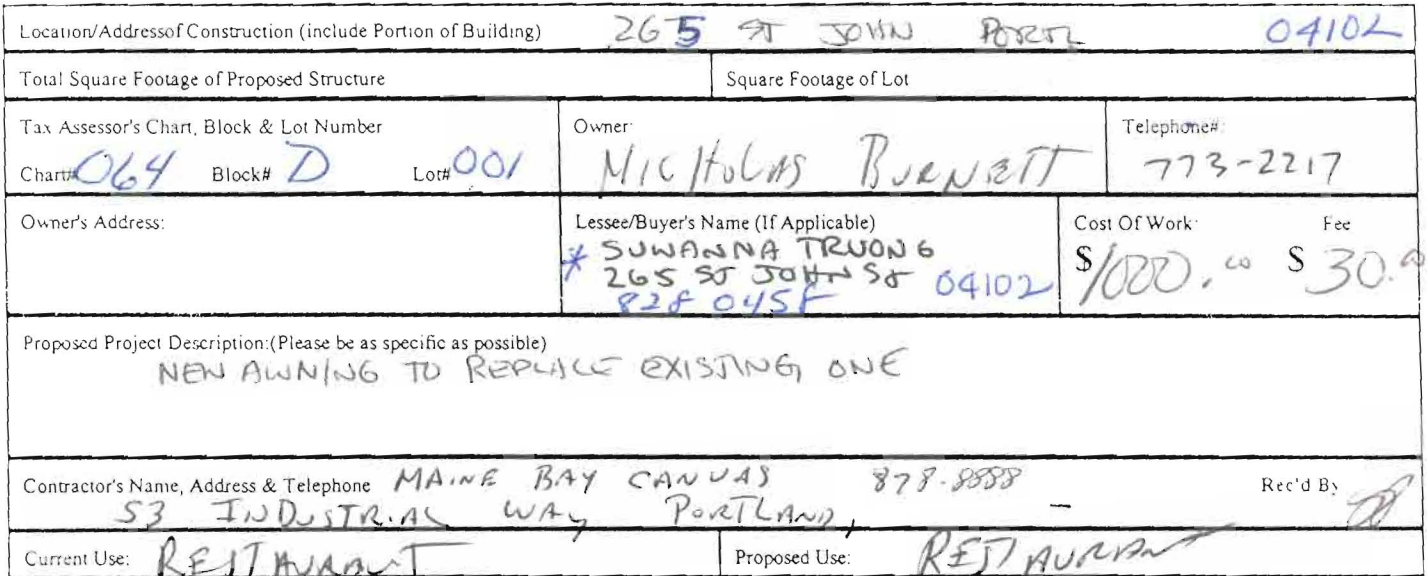 Location/Addressof Construction (include Portion of Building) 265 ST JOHN PORTL 04102
Total Square Footage of Proposed Structure Square Footage of Lot
Tax Assessor's Chart, Block & Lot Number Owner: Telephone#:
Chart# 064 Block# D Lot# 001 NICHOLAS BURNETT 773-2217
Owner's Address: Lessee/Buyer's Name (If Applicable) Cost Of Work: Fee
* SUWANNA TRUONG
265 ST JOHN St 04102 $1000.00 $ 30.00
828 0458
Proposed Project Description:(Please be as specific as possible)
NEW AWNING TO REPLACE EXISTING ONE
Contractor's Name, Address & Telephone MAINE BAY CANVAS 878-8888 Rec'd By
53 INDUSTRIAL WAY PORTLAND,
Current Use: RESTAURANT Proposed Use: RESTAURANT